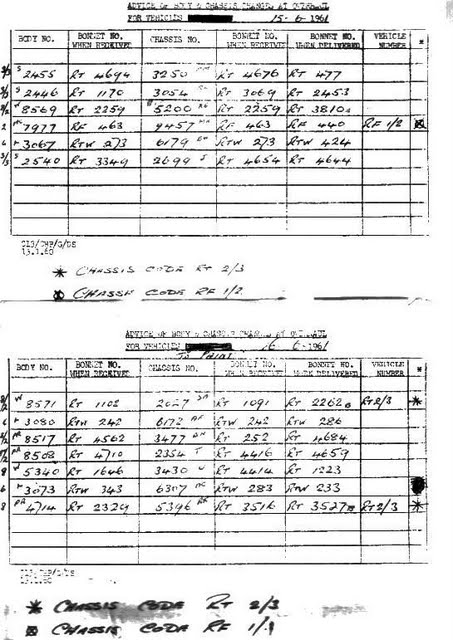 ADVICE OF BODY & CHASSIS CHANGES AT OVERHAUL
FOR VEHICLES 15-6-1961
BODY NO. BONNET NO. WHEN RECEIVED CHASSIS NO. BONNET NO. WHEN DELIVERED VEHICLE NUMBER *
3/3 S 2455 RT 4694 3250 RT 4676 RT 477
S 2446 RT 1170 3054 RT 3069 RT 2453
8569 RT 2259 5200 RT 2259 RT 3810
2 7977 RF 463 9457 RF 463 RF 440 RF 1/2
6 H 3067 RTW 273 6179 RTW 273 RTW 424
3/3 S 2540 RT 3349 2699 S RT 4654 RT 4644
13.1.60
* CHASSIS CODE RT 2/3
CHASSIS CODE RF 1/2
ADVICE OF BODY & CHASSIS CHANGES AT OVERHAUL
FOR VEHICLES 16-6-1961
TO PAINT
BODY NO. BONNET NO. WHEN RECEIVED CHASSIS NO. BONNET NO. WHEN DELIVERED VEHICLE NUMBER *
W 8571 RT 1102 2027 RT 1091 RT 2262 RT2/3 *
6 H 3080 RTW 242 6172 RTW 242 RTW 286
8517 RT 4562 3477 RT 252 RT 4684
8508 RT 4710 2354 T RT 4416 RT 4659
8 W 5340 RT 1646 3430 U RT 4414 RT 1223
6 H 3073 RTW 343 6307 RTW 283 RTW 233
8 4714 RT 2329 5396 RT 3516 RT 3527 RT2/3 *
* CHASSIS CODE RT 2/3
CHASSIS CODE RF